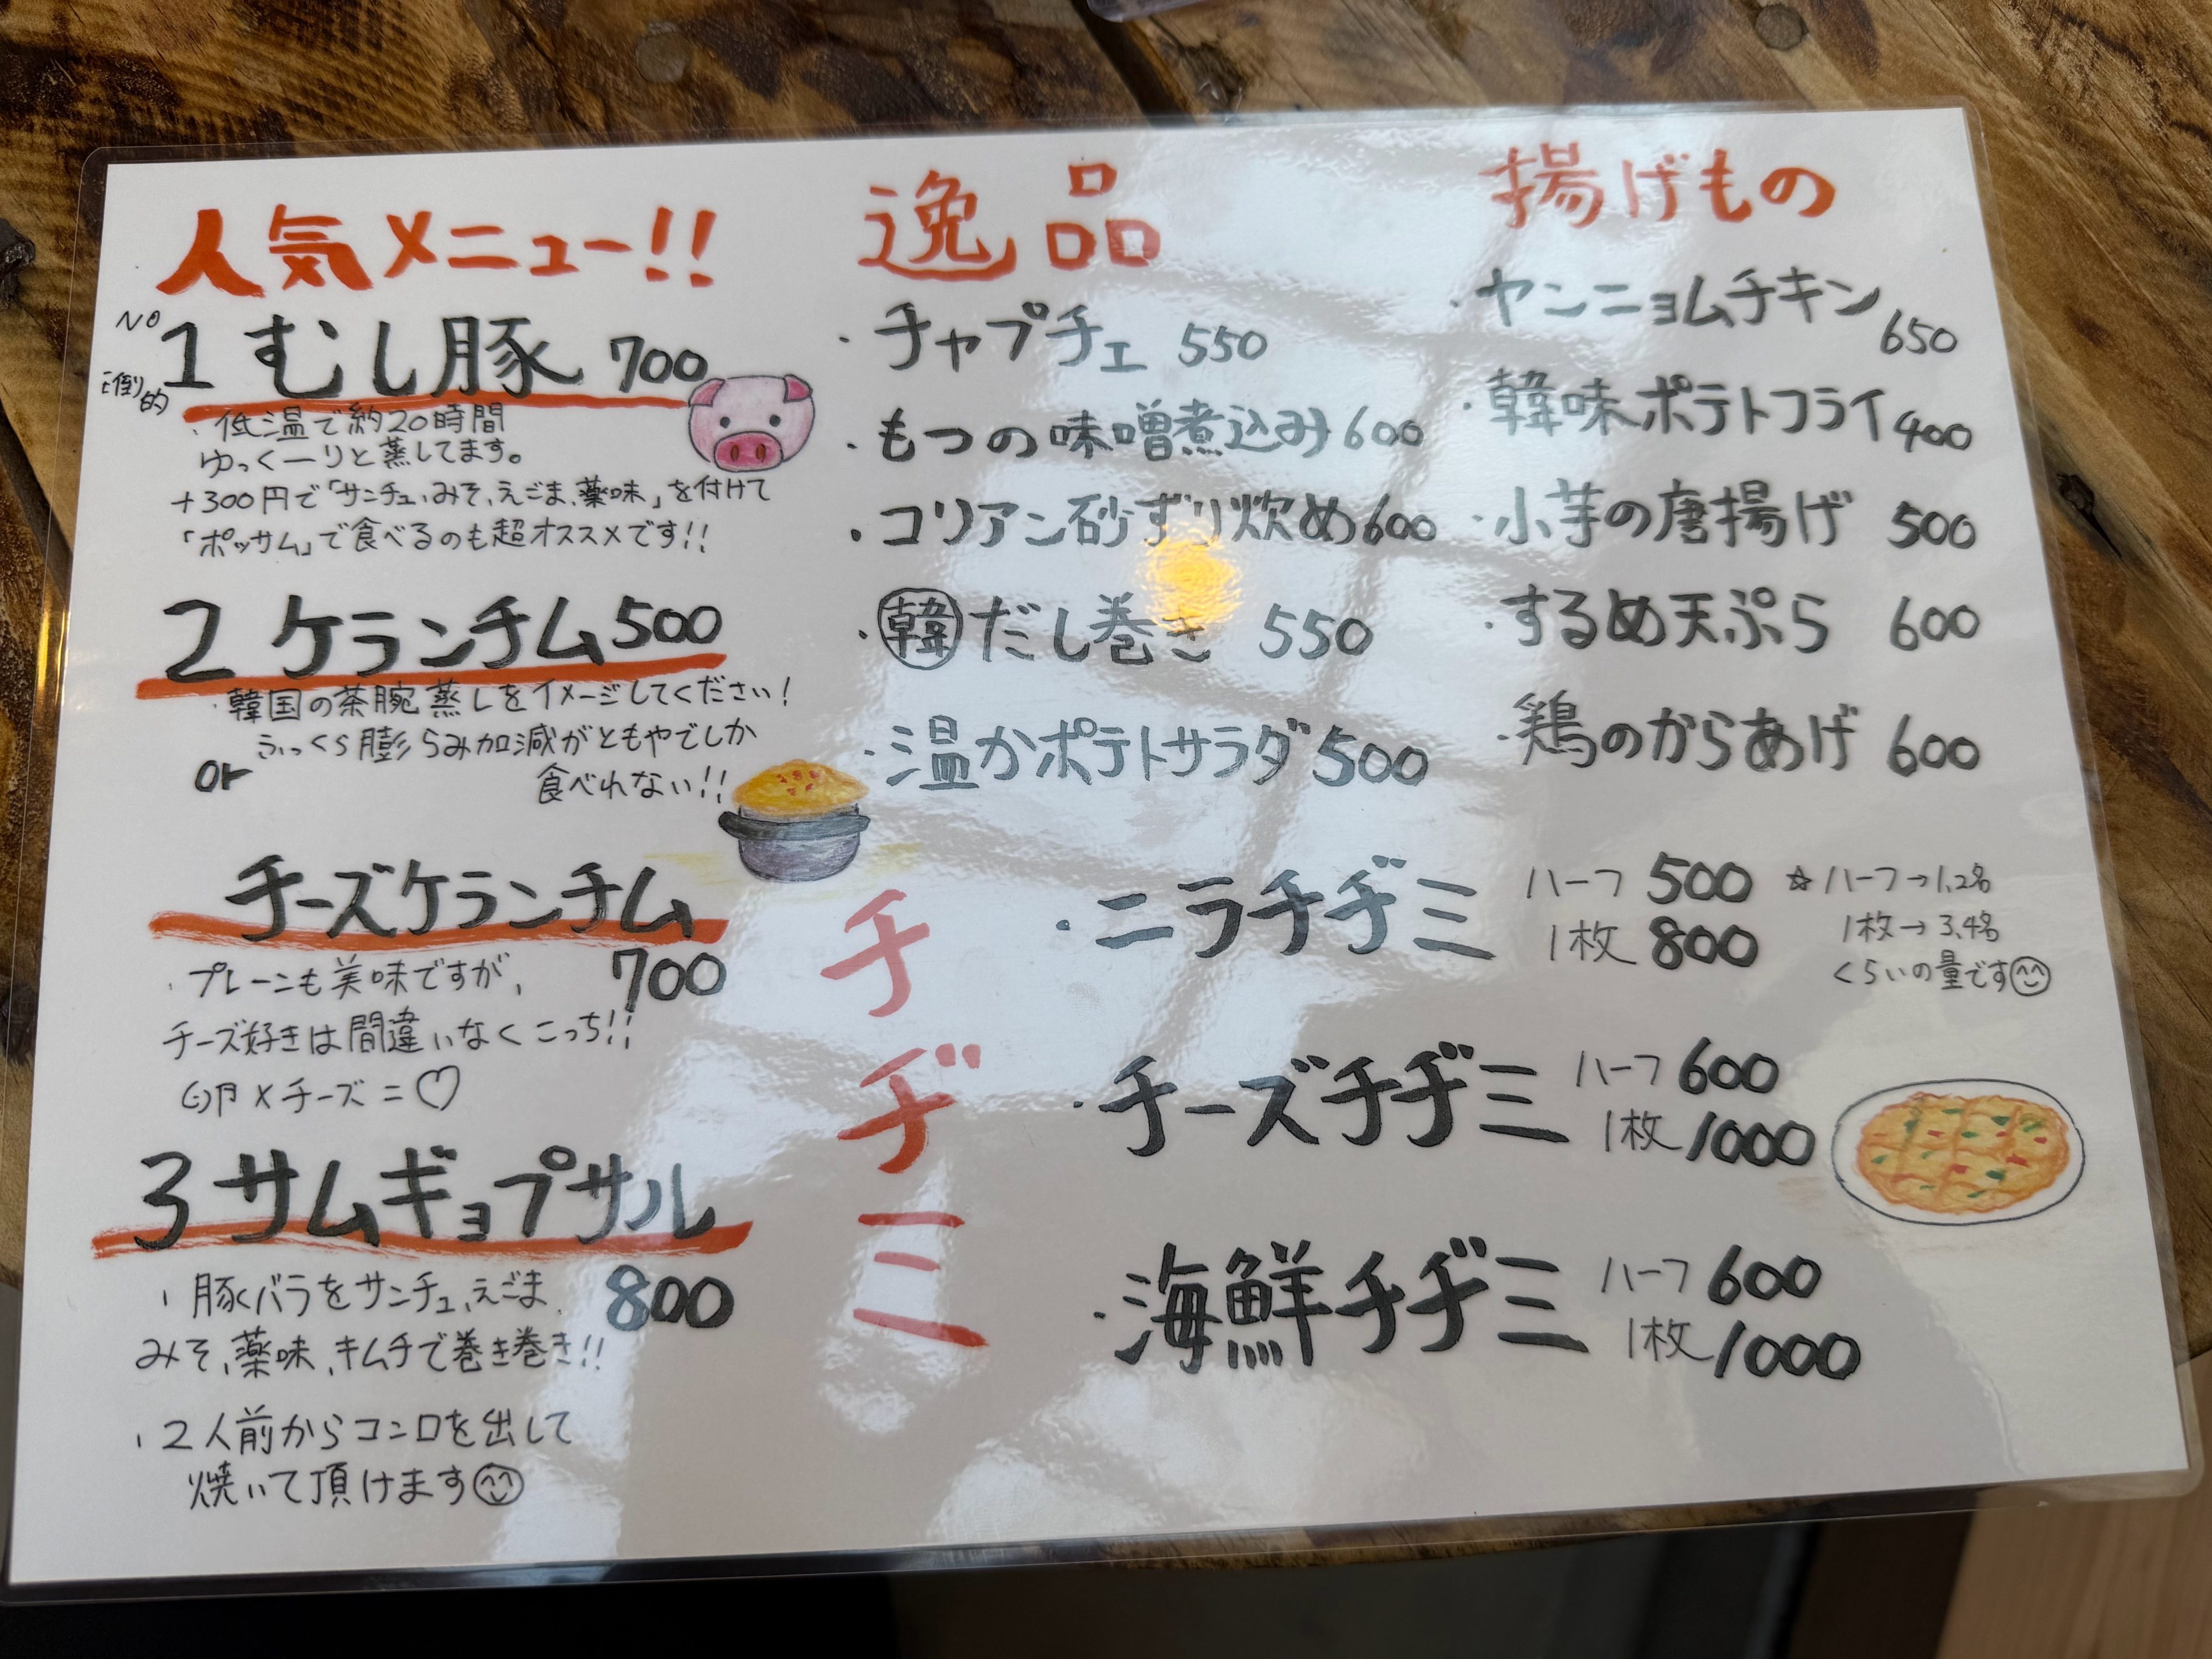 人気メニュー!!
No
1 むし豚 700
圧倒的
・低温で約20時間
ゆっくーりと蒸してます。
+300円で「サンチュ、みそ、えごま、薬味」を付けて
「ポッサム」で食べるのも超オススメです!!
2 ケランチム 500
・韓国の茶腕蒸しをイメージしてください!
ふっくら膨らみ加減がともやでしか
食べれない!!
or
チーズケランチム
700
・プレーンも美味ですが、
チーズ好きは間違いなくこっち!!
卵×チーズ=♡
3 サムギョプサル
800
・豚バラをサンチュ、えごま、
みそ、薬味、キムチで巻き巻き!!
・2人前からコンロを出して
焼いて頂けます
逸品
・チャプチェ 550
・もつの味噌煮込み 600
・コリアン砂ずり炊め 600
・㊩だし巻き 550
・温かポテトサラダ 500
揚げもの
・ヤンニョムチキン 650
・韓味ポテトフライ 400
・小芋の唐揚げ 500
・するめ天ぷら 600
・鶏のからあげ 600
チヂミ
・ニラチヂミ ハーフ 500
1枚 800
☆ハーフ→1,2名
1枚→3,4名
くらいの量です
・チーズチヂミ ハーフ 600
1枚 1000
・海鮮チヂミ ハーフ 600
1枚 1000